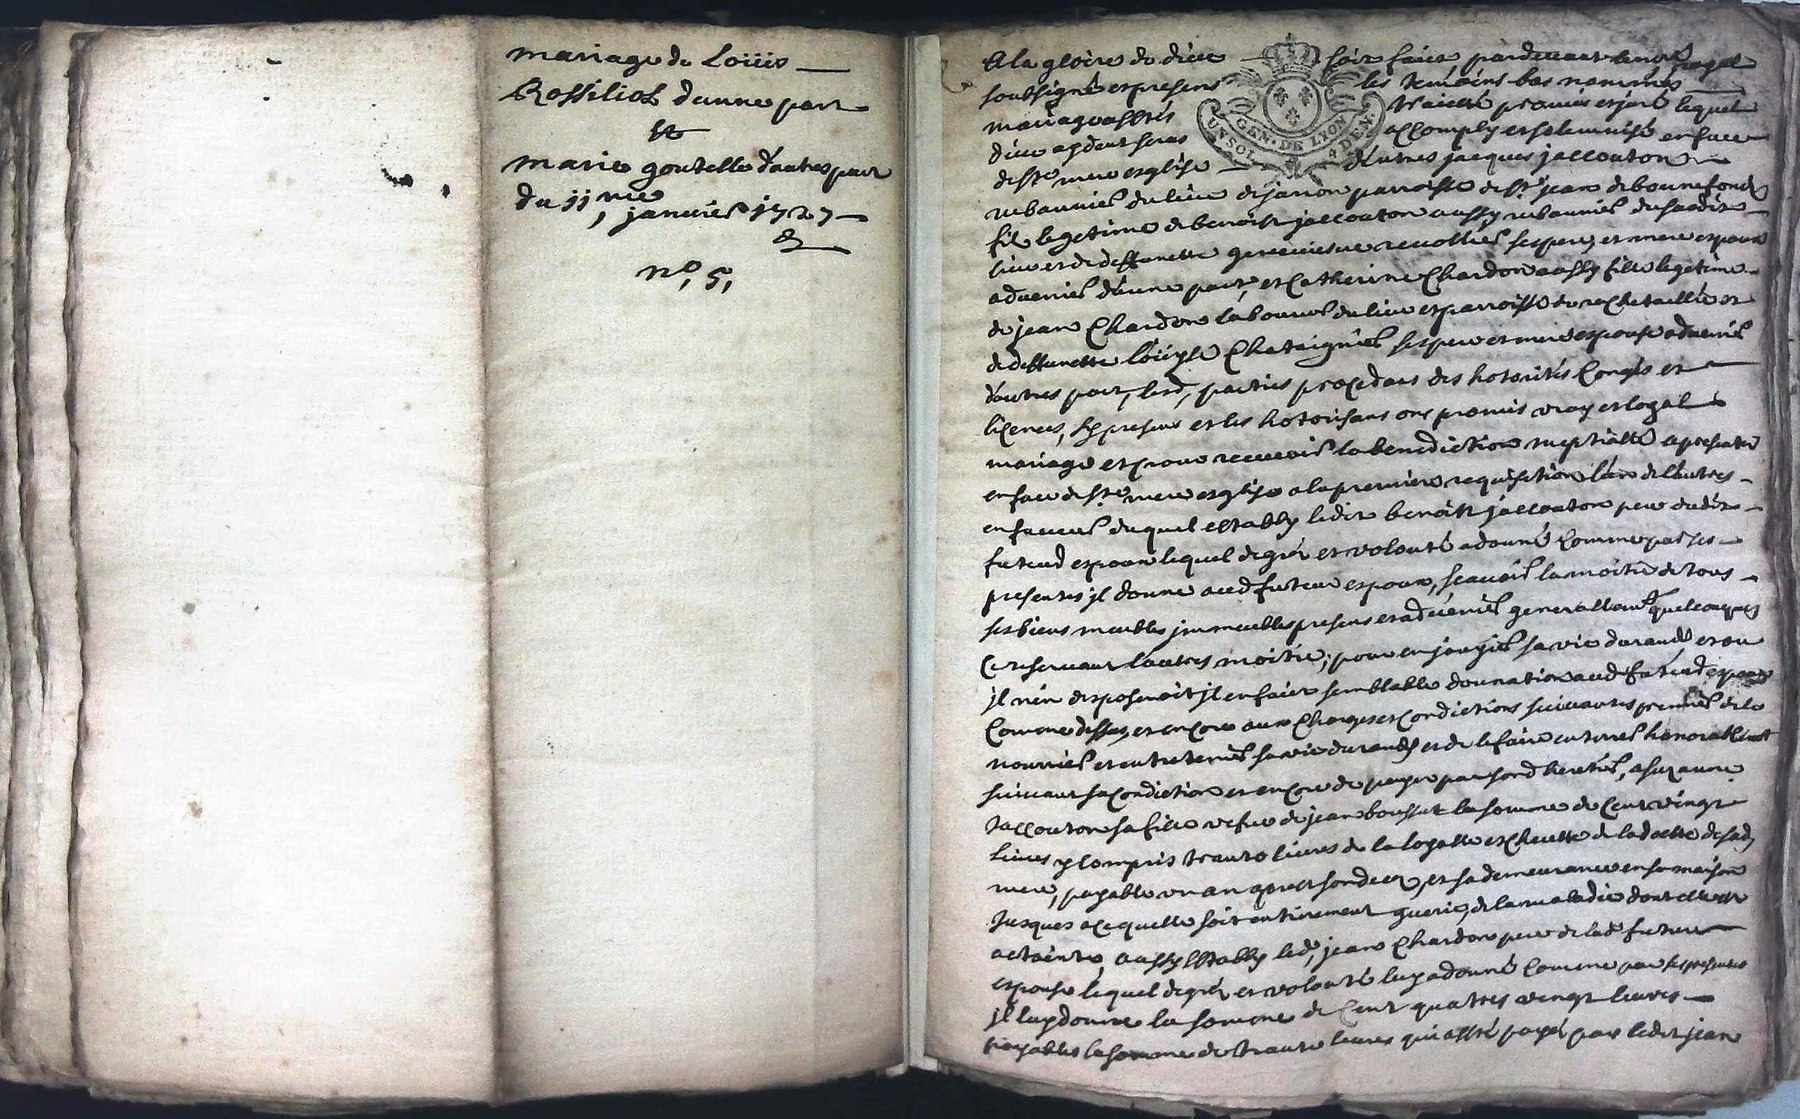 mariage de Loüis
Rossiliol d'une part
Et
marie goutelle d'autre part
du 11me janvier 1727
n°, 5,
A la gloire de dieu soit faict pardevant le nore royal
soubsigné et presens les temoins bas nommés
mariage a esté traicté promis et juré lequel
dieu aydant sera accomply et solemnisé en face
de ste mere esglise d'entres jacques jaccouton
GEN. DE LYON
UN SOL 4 DEN.
rubannier du lieu de janon parroisse de st jean de bonnefond
fils legetime de benoist jaccouton aussy rubannier dudit
lieu et de deffunette genevieve revollier ses pere et mere espoux
advenir d'une part, et Catherine Chardon aussy fille legetime
de jean Chardon laboureur du lieu et parroisse de rochetaillée et
de deffunette Loüyse Chataignier ses pere et mere espouse advenir
d'autres part, lesd, parties procedant des hotorités Congés et
licences, sy presens et les hotorisans ont promis vray et legal
mariage et pour recevoir la benediction nuptialle a presenter
en face de ste mere esglise a la premiere requisition l'un de l'autres
en faveur duquel establly ledit benoist jaccouton pere dudit
futeud espoux lequel de gré et volonté a donné Comme par ses
presentes jl donne aud futeur espoux, scavoir la moitié de tous
ses biens meubles jmmeubles presens et advenir generallemt quelconques
ce reservant l'autres moitié, pour en jouyir sa vie durand et ou
jl n'en disposeroit jl en faict semblable donnation aud futeud espoux
Comme dessus et encore aux Charges et Condictions suivantes premier de le
nourrir et entretenir sa vie durand, et de le faire enterrer honorablement
suivant sa Condiction et encore de payer par sond heretier, a suzanne
Jaccouton sa fille vefve de jean bousset la somme de Cent vingt
Livres y Compris trante livres de la legatte et Cheutte de la dotte de sad,
mere, payable un an apres son deces, et sa demeurance en sa maison
Jusques a ce quelle soit entierement guerie de la maladie dont elle est
acteinte, aussy Establly led, jean Chardon pere de lad future
espouse lequel de gré et volonté luy a donné Comme par ses presentes
jl luy donne la somme de Cent quatres vingt livres
payables la somme de trante livres qui a esté payé par ledit jean